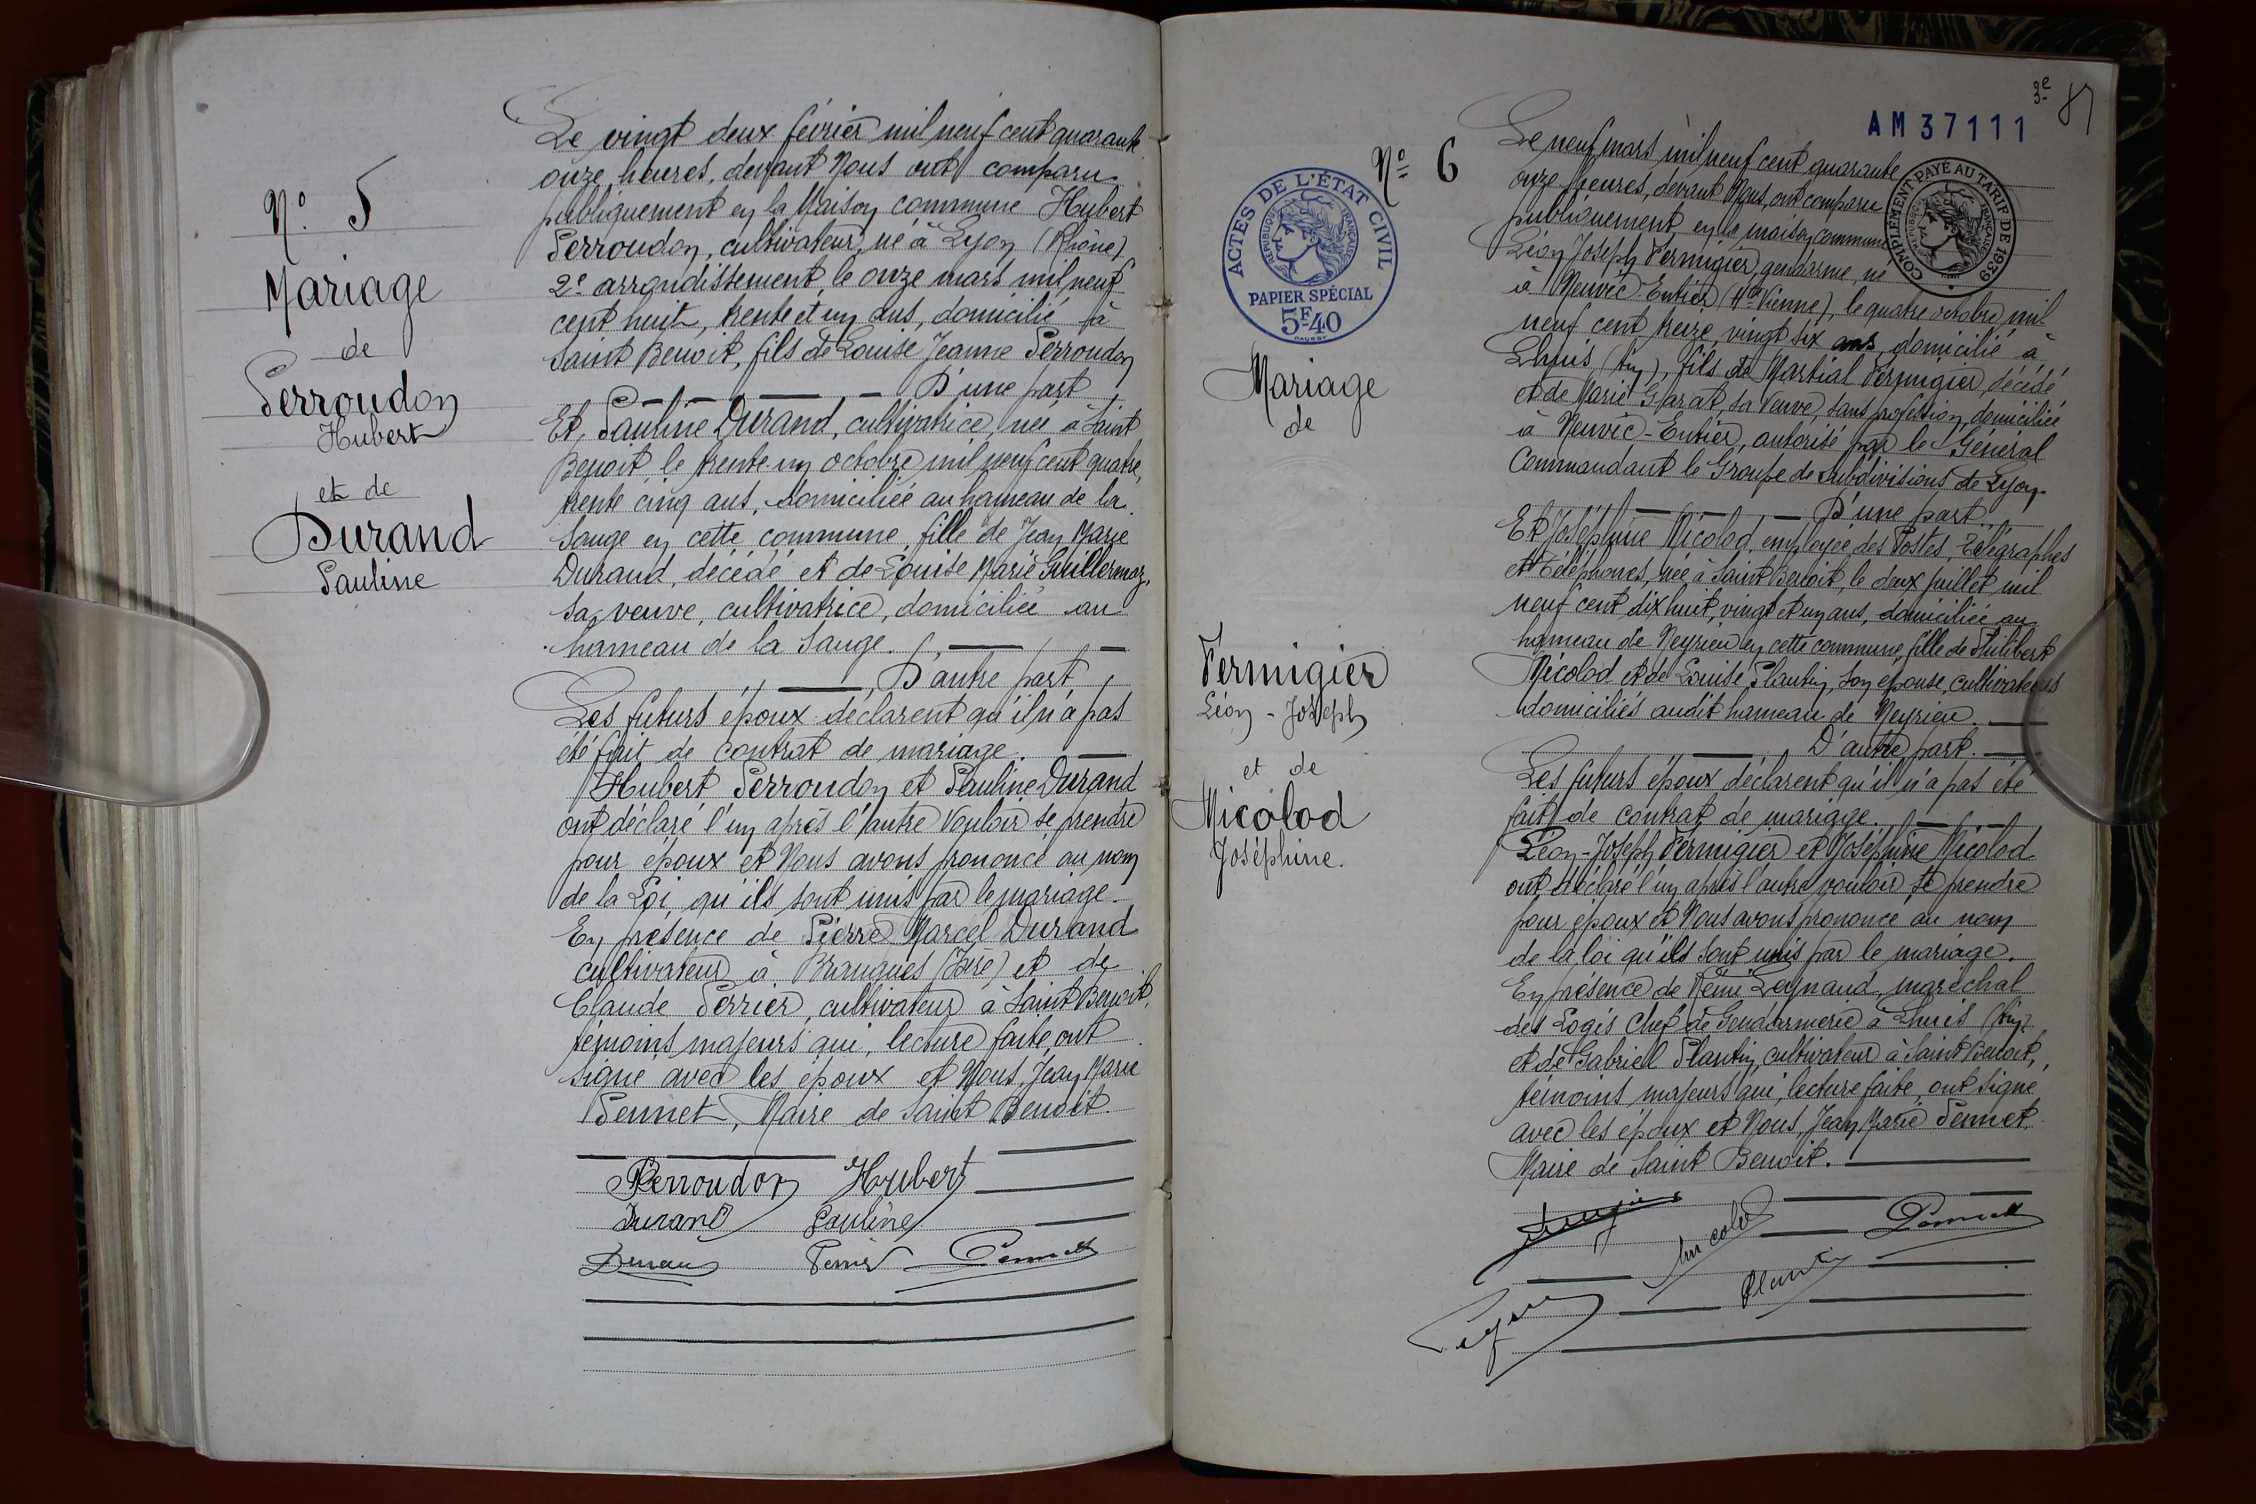 N.° 5
Mariage
de
Perroudon
Hubert
et de
Durand
Pauline
Le vingt deux février mil neuf cent quarante
onze heures, devant Nous ont comparu
publiquement en la Maison commune Hubert
Perroudon, cultivateur, né à Lyon (Rhône)
2e arrondissement, le onze mars mil neuf
cent huit, trente et un ans, domicilié à
Saint Benoit, fils de Louise Jeanne Perroudon
D'une part
Et, Pauline Durand, cultivatrice, née à Saint
Benoit, le trente-un octobre mil neuf cent quatre,
trente cinq ans, domiciliée au hameau de la
Sauge en cette commune, fille de Jean Marie
Durand, décédé et de Louise Marie Guillermoz,
sa veuve, cultivatrice, domiciliée au
hameau de la Sauge.
D'autre part
Les futurs époux déclarent qu'il n'a pas
été fait de contrat de mariage.
Hubert Perroudon et Pauline Durand
ont déclaré l'un après l'autre vouloir se prendre
pour époux et Nous avons prononcé au nom
de la Loi, qu'ils sont unis par le mariage.
En présence de Pierre Marcel Durand
cultivateur à Brangues (Isère) et de
Claude Perrier, cultivateur à Saint Benoit,
témoins majeurs qui, lecture faite, ont
signé avec les époux et Nous, Jean Marie
Pennet, Maire de Saint Benoit.
Perroudon Hubert
Durand Pauline
Durand Perrier Pennet
3e 87
AM 37111
N° 6
ACTES DE L'ÉTAT CIVIL
RÉPUBLIQUE FRANÇAISE
PAPIER SPÉCIAL
5F40
COMPLÉMENT PAYÉ AU TARIF DE 1939
Mariage
de
Vermigier
Léon-Joseph
et de
Nicolod
Joséphine.
Le neuf mars mil neuf cent quarante
onze heures, devant Nous, ont comparu
publiquement, en la maison commune
Léon Joseph Vermigier, gendarme, né
à Neuvic-Entier (Hte Vienne), le quatre octobre mil
neuf cent treize, vingt six ans, domicilié à
Lhuis (Ain), fils de Martial Vermigier, décédé
et de Marie Garat, sa veuve, sans profession, domiciliée
à Neuvic-Entier, autorisé par le Général
Commandant le Groupe de subdivisions de Lyon.
D'une part.
Et Joséphine Nicolod, employée des Postes, Télégraphes
et Téléphones, née à Saint Benoit, le deux juillet mil
neuf cent dix huit, vingt et un ans, domiciliée au
hameau de Neyrieu en cette commune, fille de Philibert
Nicolod et de Louise Plantin, son épouse, cultivateurs
domiciliés audit hameau de Neyrieu.
D'autre part.
Les futurs époux déclarent qu'il n'a pas été
fait de contrat de mariage.
Léon-Joseph Vermigier et Joséphine Nicolod
ont déclaré l'un après l'autre vouloir se prendre
pour époux et Nous avons prononcé au nom
de la loi qu'ils sont unis par le mariage.
En présence de Rémi Leynaud, maréchal
des Logis Chef de Gendarmerie à Lhuis (Ain)
et de Gabriel Plantin, cultivateur à Saint Benoit,
témoins majeurs qui, lecture faite, ont signé
avec les époux et Nous, Jean Marie Pennet
Maire de Saint Benoit.
Nicolod Pennet
Plantin